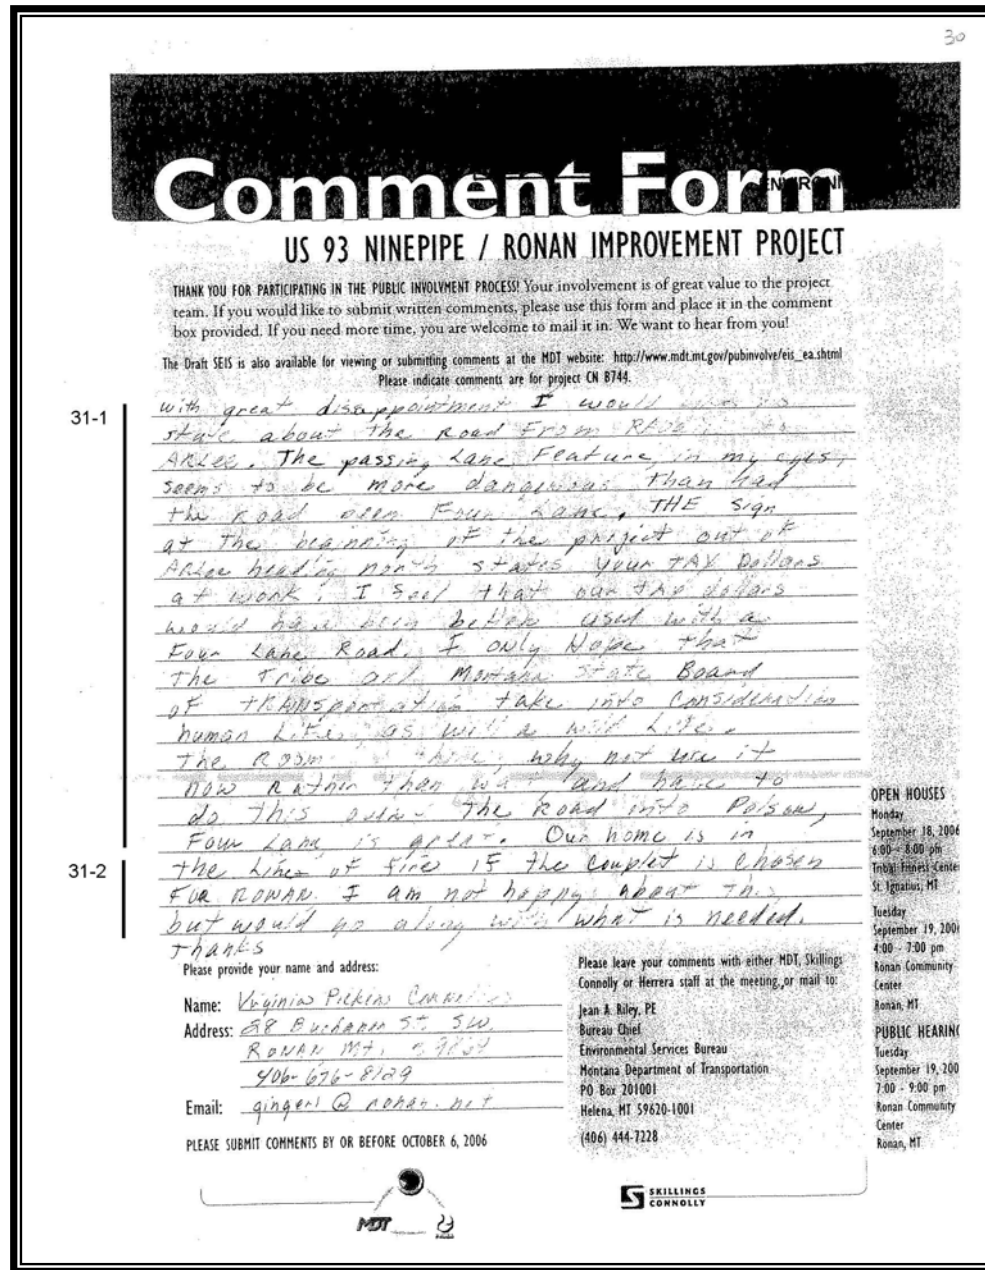 30
ENVIRONM
Comment Form
US 93 NINEPIPE / RONAN IMPROVEMENT PROJECT
THANK YOU FOR PARTICIPATING IN THE PUBLIC INVOLVMENT PROCESS! Your involvement is of great value to the project
team. If you would like to submit written comments, please use this form and place it in the comment
box provided. If you need more time, you are welcome to mail it in. We want to hear from you!
The Draft SEIS is also available for viewing or submitting comments at the MDT website: http://www.mdt.mt.gov/pubinvolve/eis_ea.shtml
Please indicate comments are for project CN B744.
31-1
with great disappointment I would
state about the Road From to
ARLee. The passing Lane Feature, in my eyes,
seems to be more dangerous than had
the road been Four Lane. THE sign
at the beginning of the project out of
ARLee heading north states your TAX Dollars
at work. I feel that our tax dollars
would have been better used with a
Four Lane Road. I only Hope that
The Tribe and Montana State Board
of TRANSportation take into Consideration
human Life as well as wild Life.
The Room there, why not use it
now Rather than wait and have to
do this over. The Road into Polson,
Four Lane is great. Our home is in
31-2
the Line of fire IF the couplet is chosen
FOR RONAN. I am not happy about this
but would go along with what is needed.
Thanks
Please provide your name and address:
Name: Virginia Pickens
Address: 28 Buchanan St. SW
RONAN Mt. 59864
406-676-8129
Email: gingerl @ ronan.net
PLEASE SUBMIT COMMENTS BY OR BEFORE OCTOBER 6, 2006
Please leave your comments with either MDT, Skillings
Connolly or Herrera staff at the meeting, or mail to:
Jean A. Riley, PE
Bureau Chief
Environmental Services Bureau
Montana Department of Transportation
PO Box 201001
Helena, MT 59620-1001
(406) 444-7228
OPEN HOUSES
Monday
September 18, 2006
6:00 - 8:00 pm
Tribal Fitness Center
St. Ignatius, MT
Tuesday
September 19, 200
4:00 - 7:00 pm
Ronan Community
Center
Ronan, MT
PUBLIC HEARING
Tuesday
September 19, 200
7:00 - 9:00 pm
Ronan Community
Center
Ronan, MT
MDT
SKILLINGS
CONNOLLY